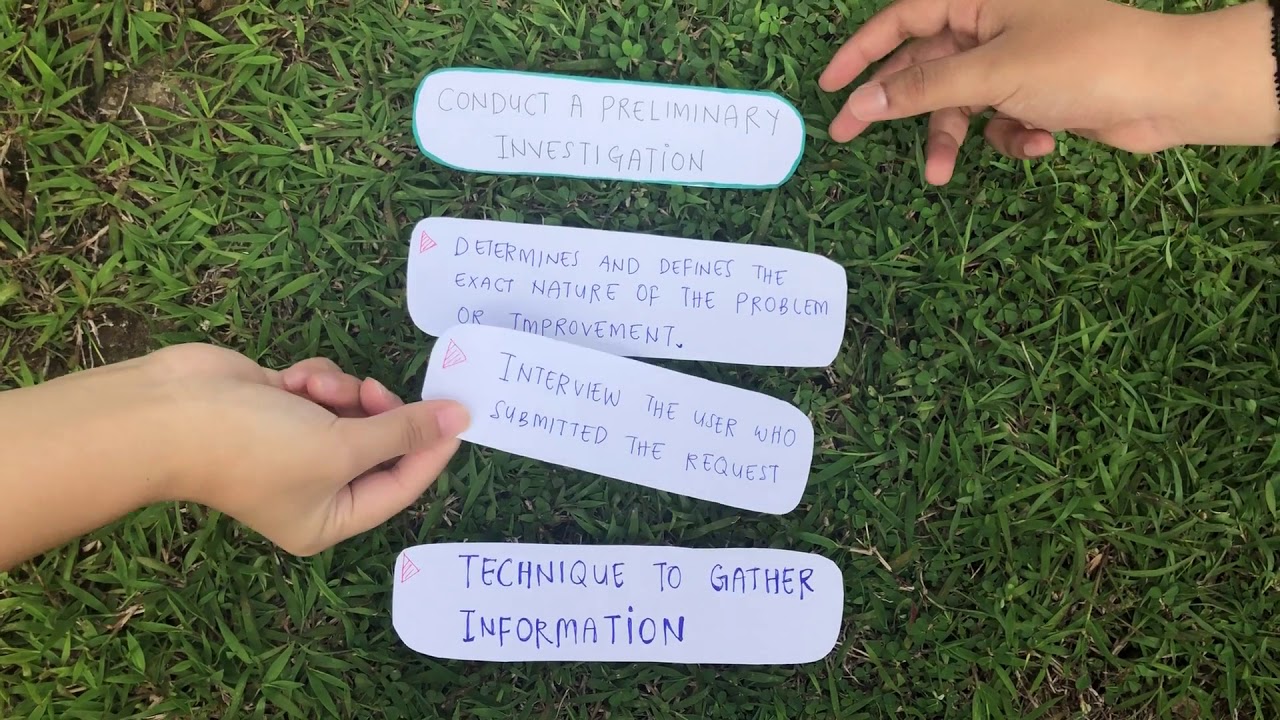 CONDUCT A PRELIMINARY
INVESTIGATION
DETERMINES AND DEFINES THE
EXACT NATURE OF THE PROBLEM
OR IMPROVEMENT.
INTERVIEW THE USER WHO
SUBMITTED THE REQUEST
TECHNIQUE TO GATHER
INFORMATION